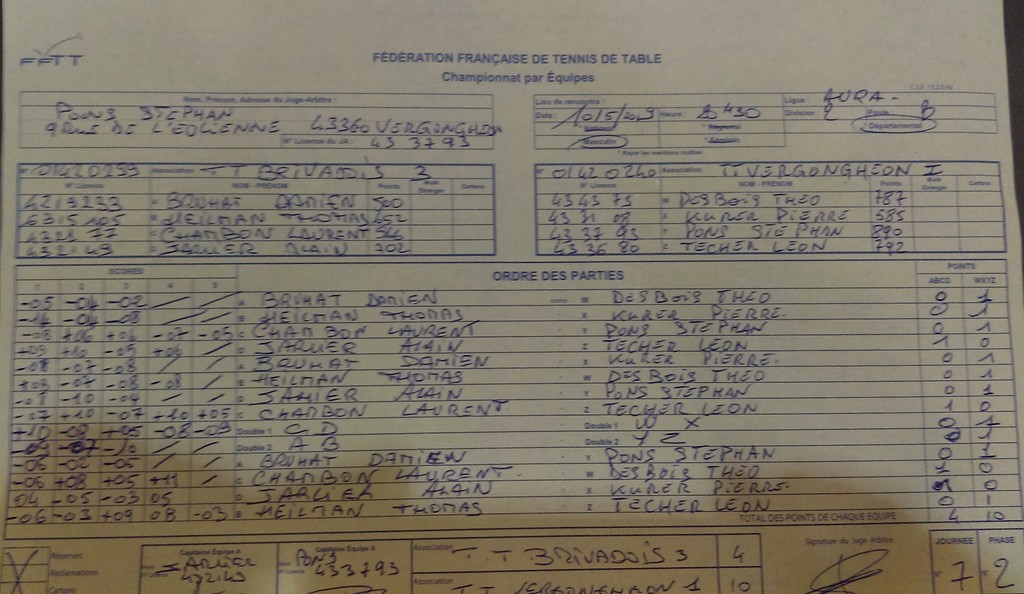 FFTT
FÉDÉRATION FRANÇAISE DE TENNIS DE TABLE
Championnat par Équipes
Nom, Prénom, Adresse du Juge-Arbitre :
PONS STEPHAN
9 RUE DE L'EOLIENNE 43360 VERGONGHEON
N° Licence du JA : 43 3793
Lieu de rencontre :
Ligue : AURA.
Date : 10/5/2019 Heure :
Division : 2 Poule : B
Masculin
Départemental
N° 01420259 Association : TT BRIVADOIS 3
N° 01420240 Association : TT VERGONGHEON I
N° Licence NOM - PRÉNOM Points Cartons
N° Licence NOM - PRÉNOM Points Cartons
4213233 BRUHAT DAMIEN 500
43 43 75 W DESBOIS THEO 787
HEILMAN THOMAS 652
43 31 08 X KURER PIERRE 585
CHAMBON LAURENT
43 37 93 Y PONS STEPHAN 890
JARLIER ALAIN 702
43 36 80 Z TECHER LEON 792
SCORES ORDRE DES PARTIES POINTS
1 2 3 4 5 ABCD WXYZ
-05 -04 -02 / / A BRUHAT DAMIEN comme W DESBOIS THEO 0 1
-14 -04 -08 / / HEILMAN THOMAS X KURER PIERRE. 0 1
-08 +06 +06 -07 -05 C CHAMBON LAURENT Y PONS STEPHAN 0 1
+09 +10 -05 +06 / JARLIER ALAIN Z TECHER LEON 1 0
-08 -07 -08 / / BRUHAT DAMIEN X KURER PIERRE. 0 1
+08 -07 -08 -08 / HEILMAN THOMAS W DESBOIS THEO 0 1
-08 -10 -04 / / JARLIER ALAIN Y PONS STEPHAN 0 1
-07 +10 -07 +10 +05 CHAMBON LAURENT. Z TECHER LEON 1 0
+10 -08 +05 -08 -09 Double 1 C D Double 1 W X 0 1
-09 -07 -10 / / Double 2 A B Double 2 Y Z 0 1
-06 -02 -05 / / A BRUHAT DAMIEN Y PONS STEPHAN 0 1
-06 +08 +05 +11 / C CHAMBON LAURENT. W DESBOIS THEO 1 0
04 -05 -03 05 D JARLIER ALAIN X KURER PIERRE. 0
-06 -03 +09 08 -03 B HEILMAN THOMAS Z TECHER LEON 0 1
TOTAL DES POINTS DE CHAQUE ÉQUIPE 4 10
Réserves
Réclamations
Cartons
Capitaine Équipe A
JARLIER
Capitaine Équipe X
PONS
433793
Association : T.T BRIVADOIS 3 4
Association : TT VERGONGHEON 1 10
Signature du Juge Arbitre
JOURNEE PHASE
N° 7 N° 2